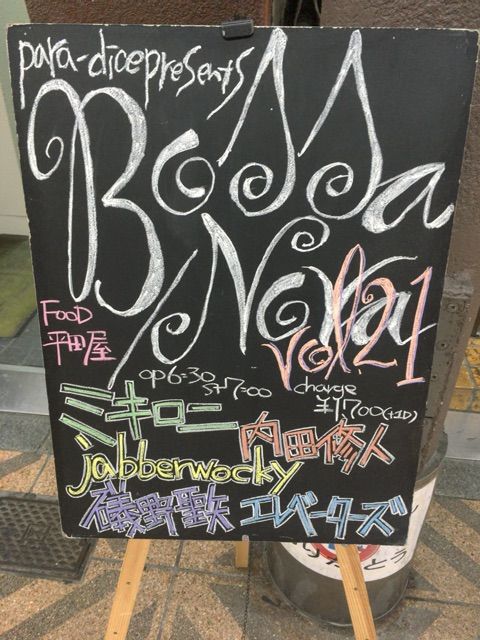 para-dice presents
BoSSa
Nova
vol.21
FOOD
平田屋
op6:30
st7:00
charge
¥1700(+1D)
ミキロニ
内田修人
jabberwocky
磯野聖矢
エレベーターズ